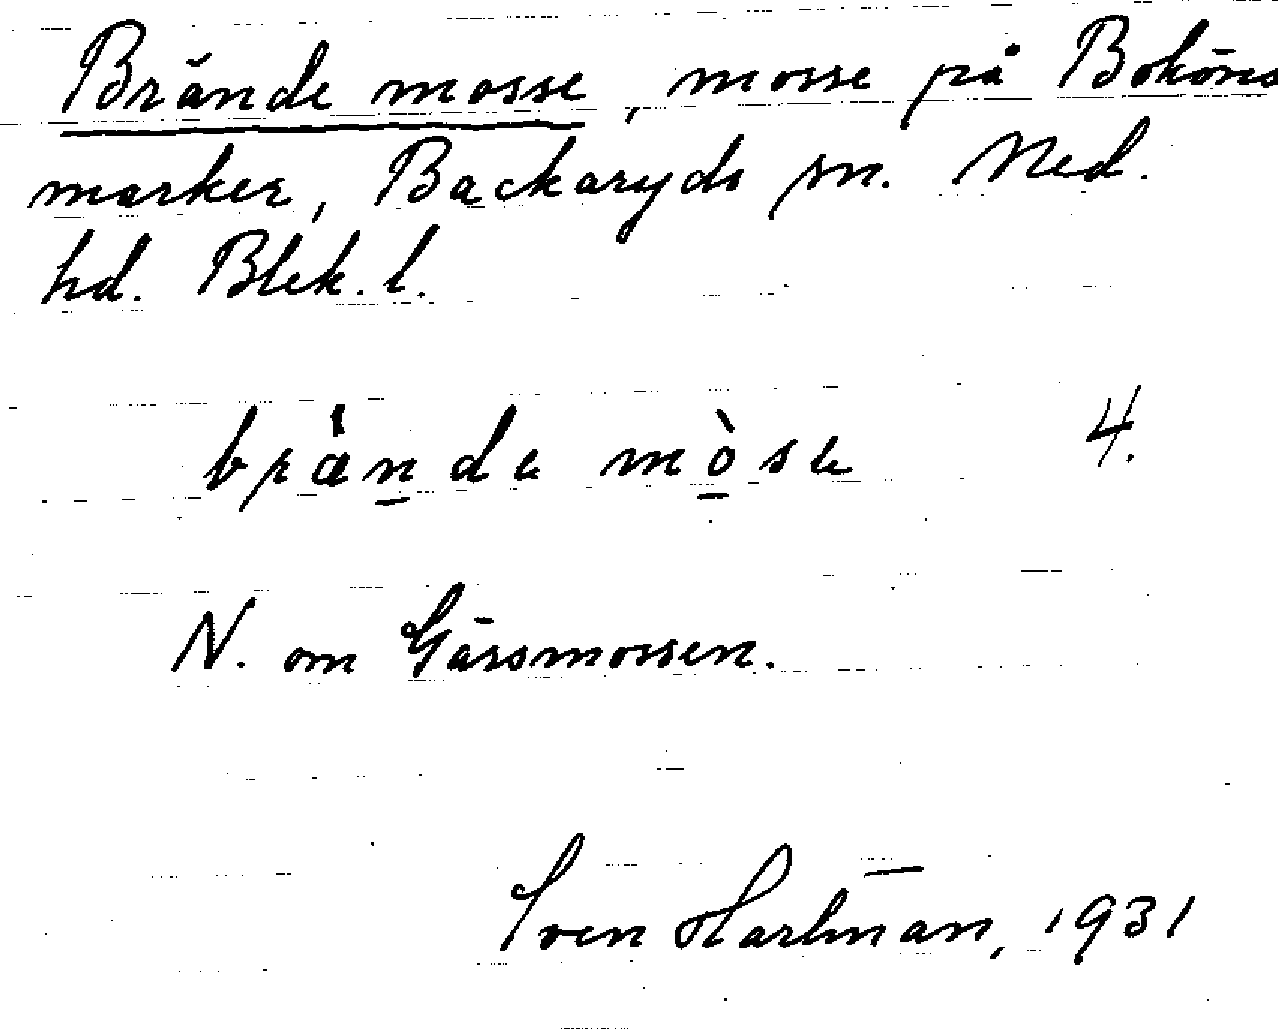 Brände mosse, mosse på Boköns
marker, Backaryds sn. Med.
hd. Blek. l.
brànde mòse 4.
N. om Gärsmossen.
Sven Hartman, 1931